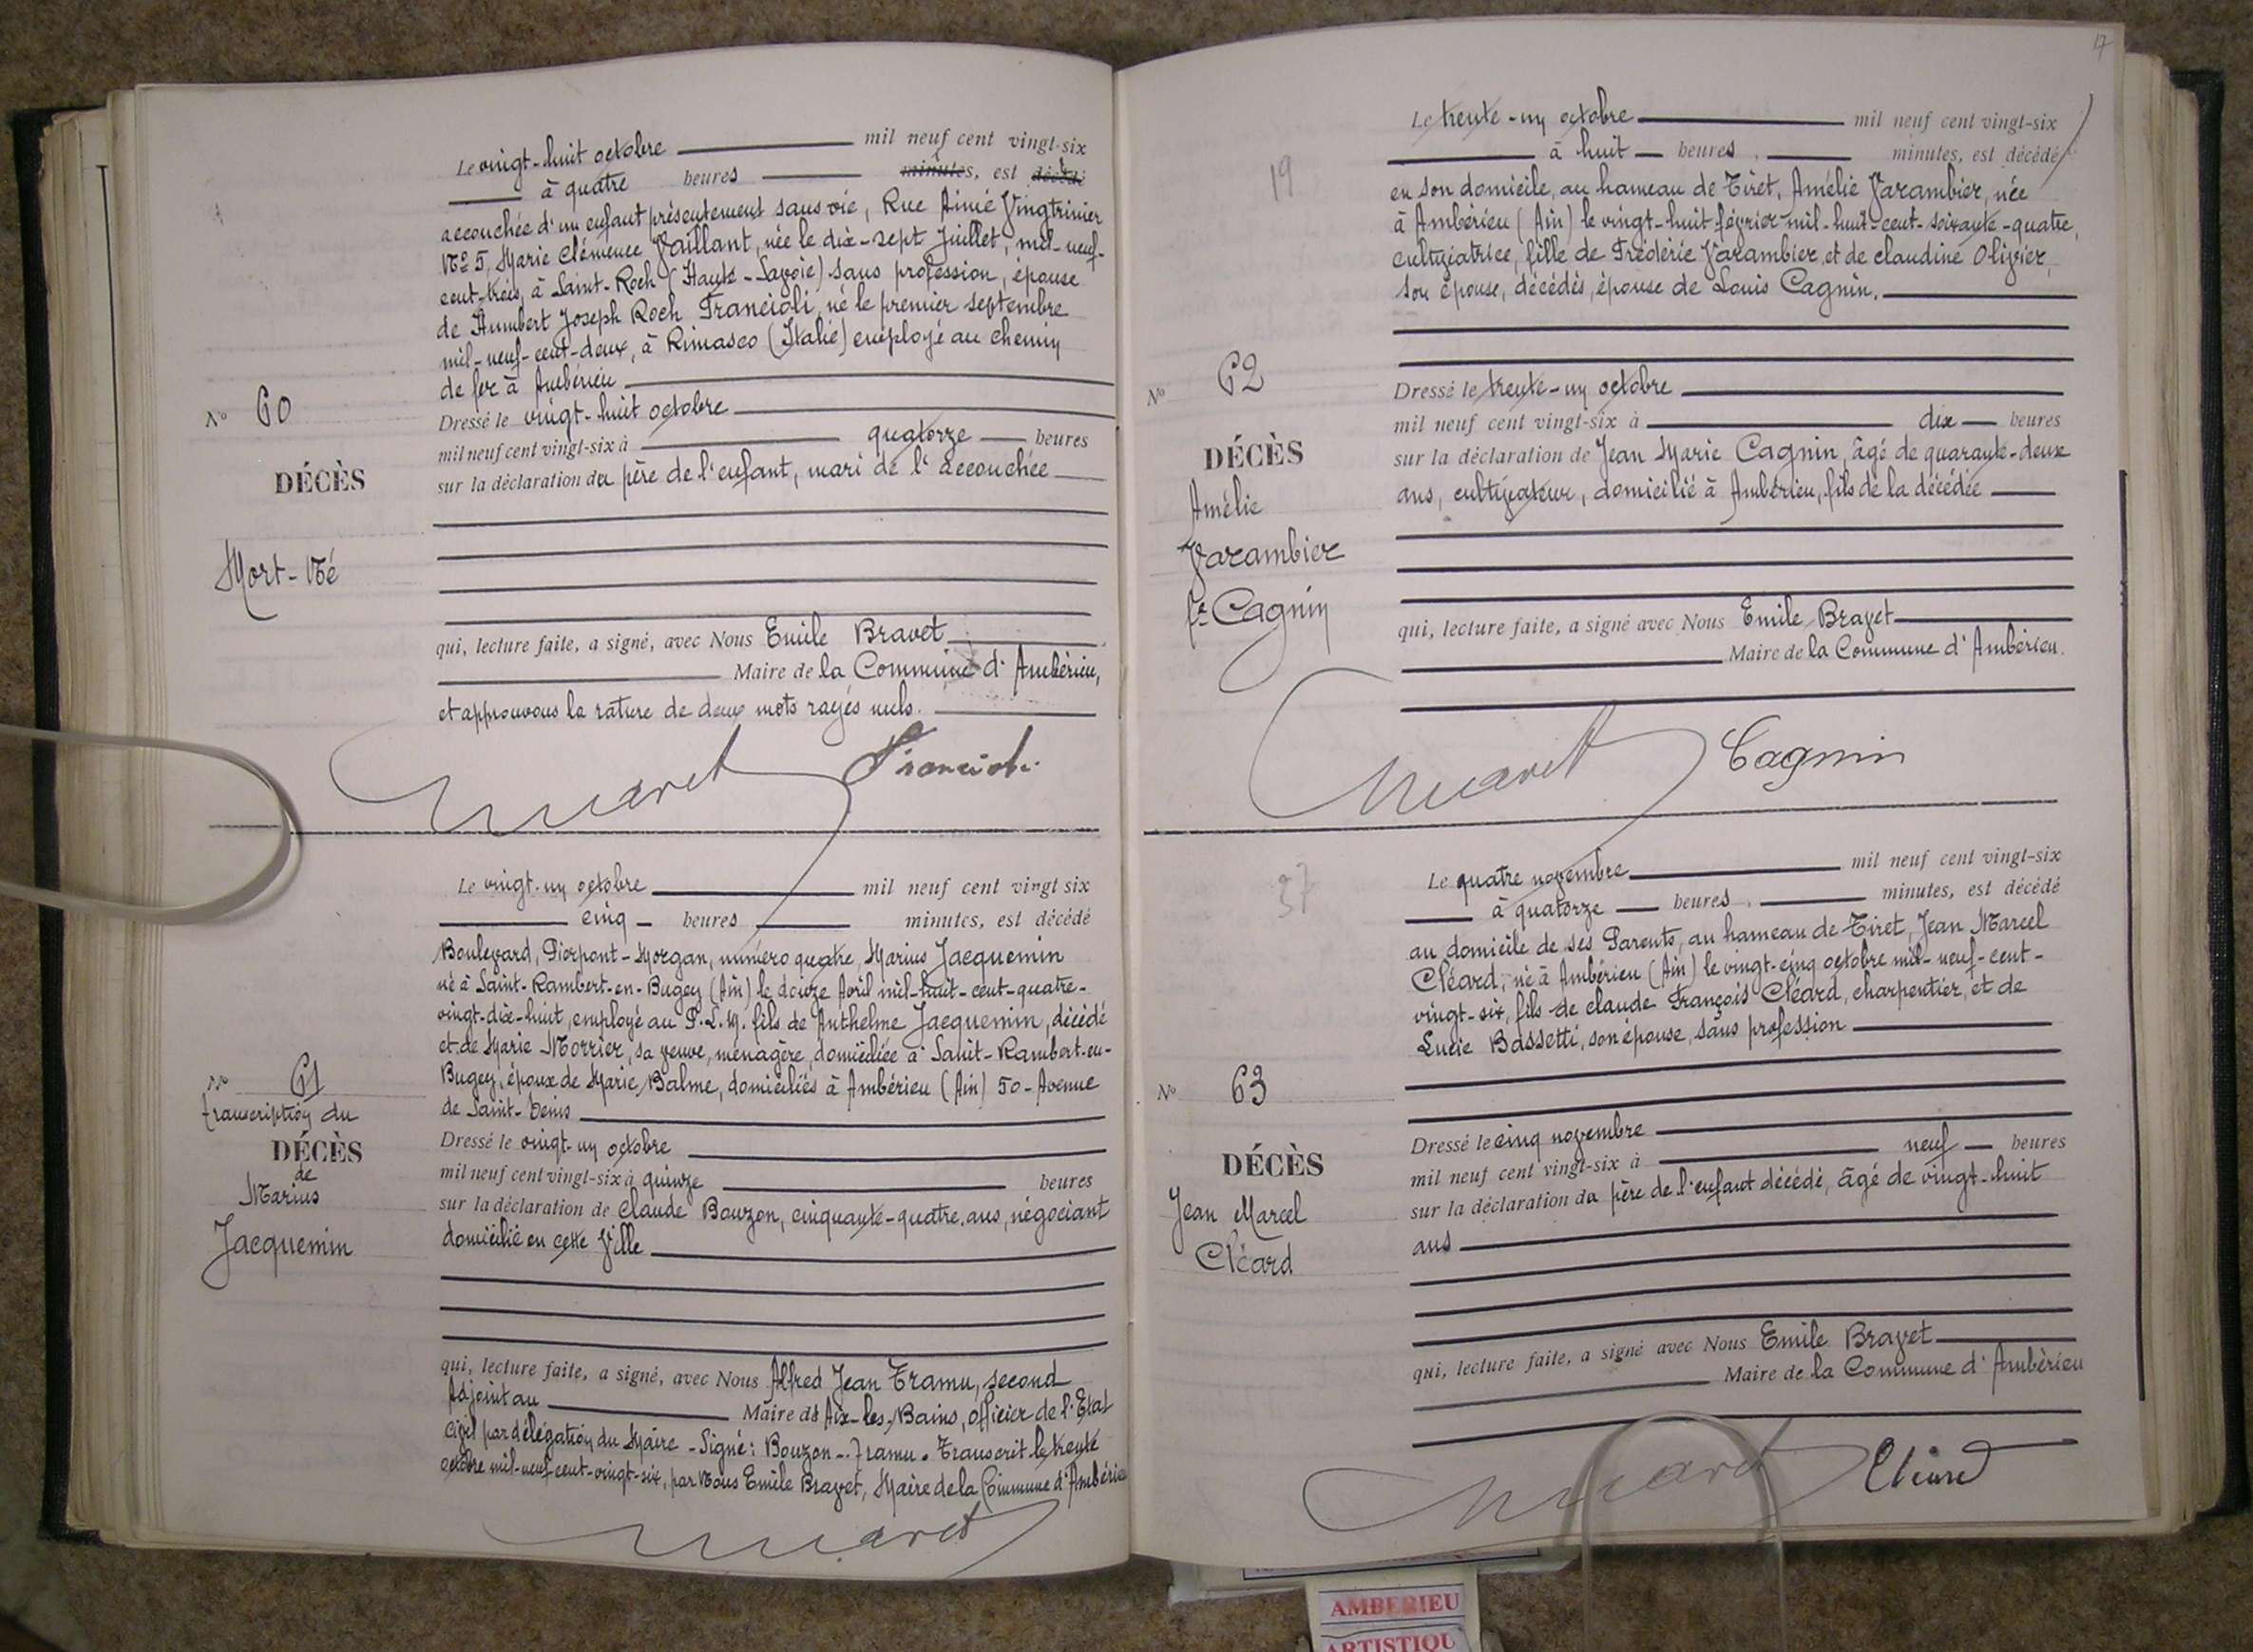 Le vingt-huit octobre mil neuf cent vingt-six
à quatre heures minutes, est décédé
accouchée d'un enfant présentement sans vie, Rue Aimé Vingtrinier
No 5, Marie Clémence Vaillant, née le dix-sept Juillet, mil-neuf-
cent-trois, à Saint-Roch (Haute-Savoie) sans profession, épouse
de Humbert Joseph Roch Francioli, né le premier septembre
mil-neuf-cent-deux, à Rimasco (Italie) employé au chemin
de fer à Ambérieu
No 60
DÉCÈS
Mort-Né
Dressé le vingt-huit octobre
mil neuf cent vingt-six à quatorze heures
sur la déclaration du père de l'enfant, mari de l'accouchée
qui, lecture faite, a signé, avec Nous Emile Bravet
Maire de la Commune d'Ambérieu,
et approuvons la rature de deux mots rayés nuls.
Francioli
Le vingt-un octobre mil neuf cent vingt six
cinq heures minutes, est décédé
Boulevard, Pierpont-Morgan, numéro quatre, Marius Jacquemin
né à Saint-Rambert-en-Bugey (Ain) le douze Avril mil-huit-cent-quatre-
vingt-dix-huit, employé au P.L.M. fils de Anthelme Jacquemin, décédé
et de Marie Morrier, sa veuve, ménagère, domiciliée à Saint-Rambert-en-
Bugey, époux de Marie Balme, domiciliés à Ambérieu (Ain) 50-Avenue
de Saint-Denis
No 61
transcription du
DÉCÈS
de
Marius
Jacquemin
Dressé le vingt-un octobre
mil neuf cent vingt-six à quinze heures
sur la déclaration de Claude Bouzon, cinquante-quatre ans, négociant
domicilié en cette Ville
qui, lecture faite, a signé, avec Nous Alfred Jean Tramu, second
Adjoint au Maire d'Aix-les-Bains, officier de l'Etat
Civil par délégation du Maire - Signé: Bouzon - Tramu. Transcrit le trente
octobre mil-neuf-cent-vingt-six, par Nous Emile Bravet, Maire de la Commune d'Ambérieu
17
19
Le trente-un octobre mil neuf cent vingt-six
à huit heures minutes, est décédé
en son domicile, au hameau de Tiret, Amélie Varambier, née
à Ambérieu (Ain) le vingt-huit février mil-huit-cent-soixante-quatre,
cultivatrice, fille de Frédéric Varambier, et de claudine Olivier,
son épouse, décédés, épouse de Louis Cagnin.
No 62
DÉCÈS
Amélie
Varambier
fe Cagnin
Dressé le trente-un octobre
mil neuf cent vingt-six à dix heures
sur la déclaration de Jean Marie Cagnin, âgé de quarante-deux
ans, cultivateur, domicilié à Ambérieu, fils de la décédée
qui, lecture faite, a signé avec Nous Emile Bravet
Maire de la Commune d'Ambérieu.
Cagnin
37
Le quatre novembre mil neuf cent vingt-six
à quatorze heures minutes, est décédé
au domicile de ses Parents, au hameau de Tiret, Jean Marcel
Cléard, né à Ambérieu (Ain) le vingt-cinq octobre mil-neuf-cent-
vingt-six, fils de claude François Cléard, charpentier, et de
Lucie Bassetti, son épouse, sans profession
No 63
DÉCÈS
Jean Marcel
Cléard
Dressé le cinq novembre
mil neuf cent vingt-six à neuf heures
sur la déclaration du père de l'enfant décédé, âgé de vingt-huit
ans
qui, lecture faite, a signé avec Nous Emile Bravet
Maire de la Commune d'Ambérieu
Cléard
AMBERIEU
ARTISTIQU